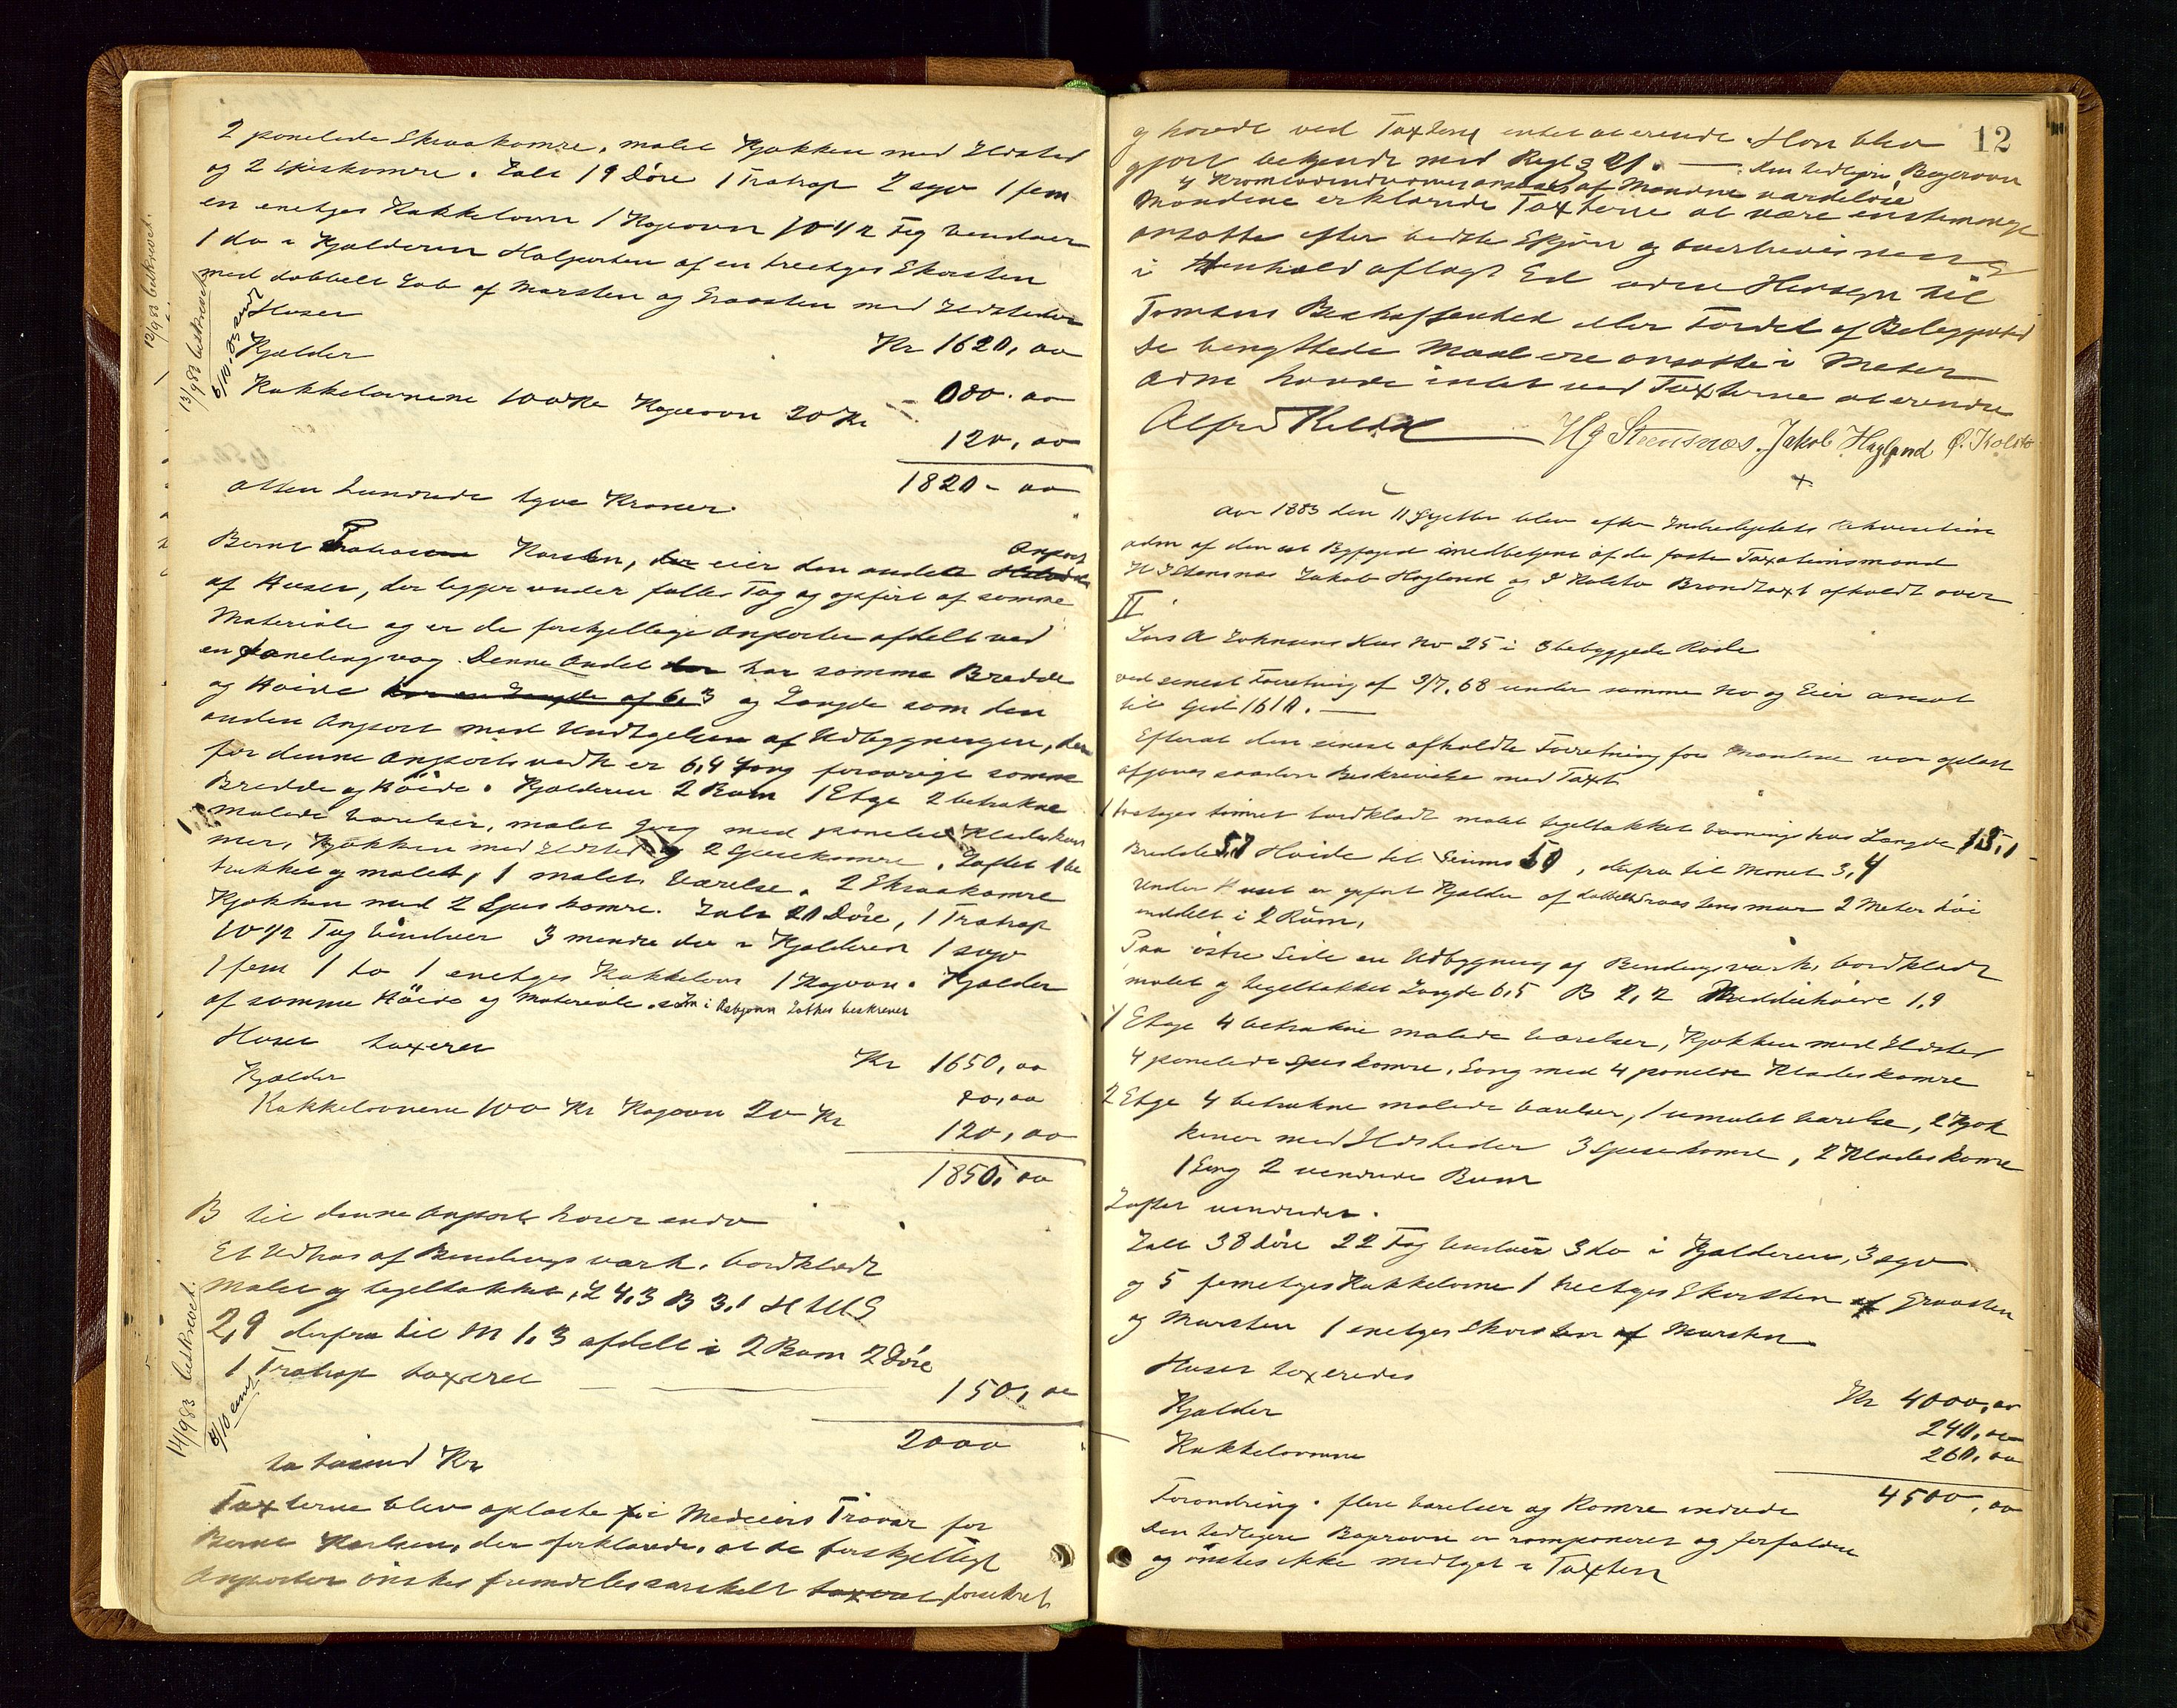 2 panelede Skraakamre, malet Kjøkken med Ildsted
og 2 Spiskamre. Ialt 19 Döre 1 Tratrap 2 syv 1 fem
en enetges Kakkelovn 1 Kogeovn 10 1/2 Fag Venduer
1 do i Kjælderen Halparten af en treetges Skorsten
med dobbelt Løb af Mursten og Graasten med Ildsteder
Huset Kr 1620, 00
Kjælder 80. 00
Kakkelovnene 100 Kr Kogeovn 20 Kr 120, 00
1820 - 00
atten hundrede tyve Kroner.
12/9 83 beskrevet.
13/9 83 beskrevet
5/10.83 send
Berne Karsten, der eier den andel Anpart
af Huset, der ligger under fælles Tag og opfört af samme
Materiale og er de forskjellige Anparter afdelt ved
en panelingvæg. Denne Andel har samme Bredde
og Høide har en Længde af 6.3 og Længde som den
anden Anpart med Undtagelse af Udbygningen, der
for denne Anparts vedk er 6,4 lang forøvrigt samme
Bredde og Höide. Kjælderen 2 Rum 1 Etge 2 betrukne
malede Værelser, malet Gang med panelet Klædeskam
mer, Kjøkken med Ildsted og 2 Spisekamre. Loftet 1 be
trukket og malet, 1 malet Værelse. 2 Skraakamre
Kjøkken med 2 Spiskamre. Ialt 20 Döre, 1 Tratrap
10 1/2 Fag Vinduer 3 mindre do i Kjælderen 1 syv
1 fem 1 to 1 enetges Kakkelovn 1 Kogovn. Kjælder
af samme Höide og Materiale som i Asbjørn Lothes beskrevet
Huset taxeret Kr 1650, 00
Kjælder 80,00
Kakkelovnene 100 Kr Kogeovn 20 Kr 120, 00
1850, 00
B til denne Anpart hører endv
Et Udhus af Bindingsværk, bordklædt
Malet og tegltækket, L 4,3 B 3,1 H til G
2,9 derfra til M 1,3 afdelt i 2 Rum 2 Döre
1 Tratrap taxeret 150, 00
2000
to tusind Kr
14/9 83 beskrevet.
8/10 send
Taxterne blev oplæste i Medeiers Fravær for
Berne Karlsen, der forklarede, at de forskjellige
Anparter önskes fremdeles særskelt taxeret forsikret
12
og havde ved Taxterne entet at erendre. Hon blev
gjort bekjendt med Regl § 21. — Den tedligere Bageravn
Mændene erklærede Taxterne at være enstemmige
ansatte efter bedste Skjøn og overbevisning
i Henhold aflagt Ed uden Hensyn til
Tomtens Beskaffenhed eller Fordel af Beliggenhed
De benyttede Maal ere ansatte i Meter
Adm havde intet ved Taxterne at erendre
Alfred H J Steensnæs. Jakob Haglund Ø. Kolstø
Aar 1883 den 11 Septbr blev efter Indredepartets rekvisition
adm af den cst Byfoged i medbetjent af de faste Taxationsmænd
H J Stensnæs Jakob Haglund og Ø Kolstø Brandtaxt afholdt over
II
Lars A Johnsens Hus No 25 i 3 bebyggede Rode
ved senest Forretning af 3/7. 68 under samme No og Eier ansat
til Spd 1610. —
Efterat den senest afholdte Forretning for Mændene var oplæst
afgaves saadan Beskrivelse med Taxt
1 toetages tømret bordklædt malet tegltækket Vaaningshus Længde 15,1
Bredde 5,7 Høide til Gesims 5,0, derfra til Mønet 3,4
Under Huset er opfört Kjælder af dobbelt Graastensmur 2 Meter høi
inddelt i 2 Rum.
Paa østre Side en Udbygning af Bindingsværk, bordklædt
malet og tegltækket Længde 6,5 B 2,2 Middelhøide 1,9
1 Etge 4 betrukne malede Værelser, Kjøkken med Ildsted
4 panelede Speskamre, Gang med 4 panelde Klædeskamre
2 Etge 4 betrukne malede Værelser, 1 umalet Værelse, 2 Kjøk
kener med Ildsteder 3 Spisekamre, 2 Klædeskamre
1 Gang 2 uendrede Rum
Loftet uendredet.
Ialt 38 Döre 22 Fag Vinduer 3 do i Kjælderen, 3 syv
og 5 femetges Kakkelovne 1 treetges Skorsten af Graasten
og Mursten 1 enetges Skorsten af Mursten
Huset taxeredes Kr 4000,00
Kjælder 240,00
Kakkelovnene 260, 00
4500, 00
Forandring. flere Værelser og Kamre indrede
Den tedligere Bagerovn er ramponeret og forfalden
og önskes ikke medtaget i Taxten